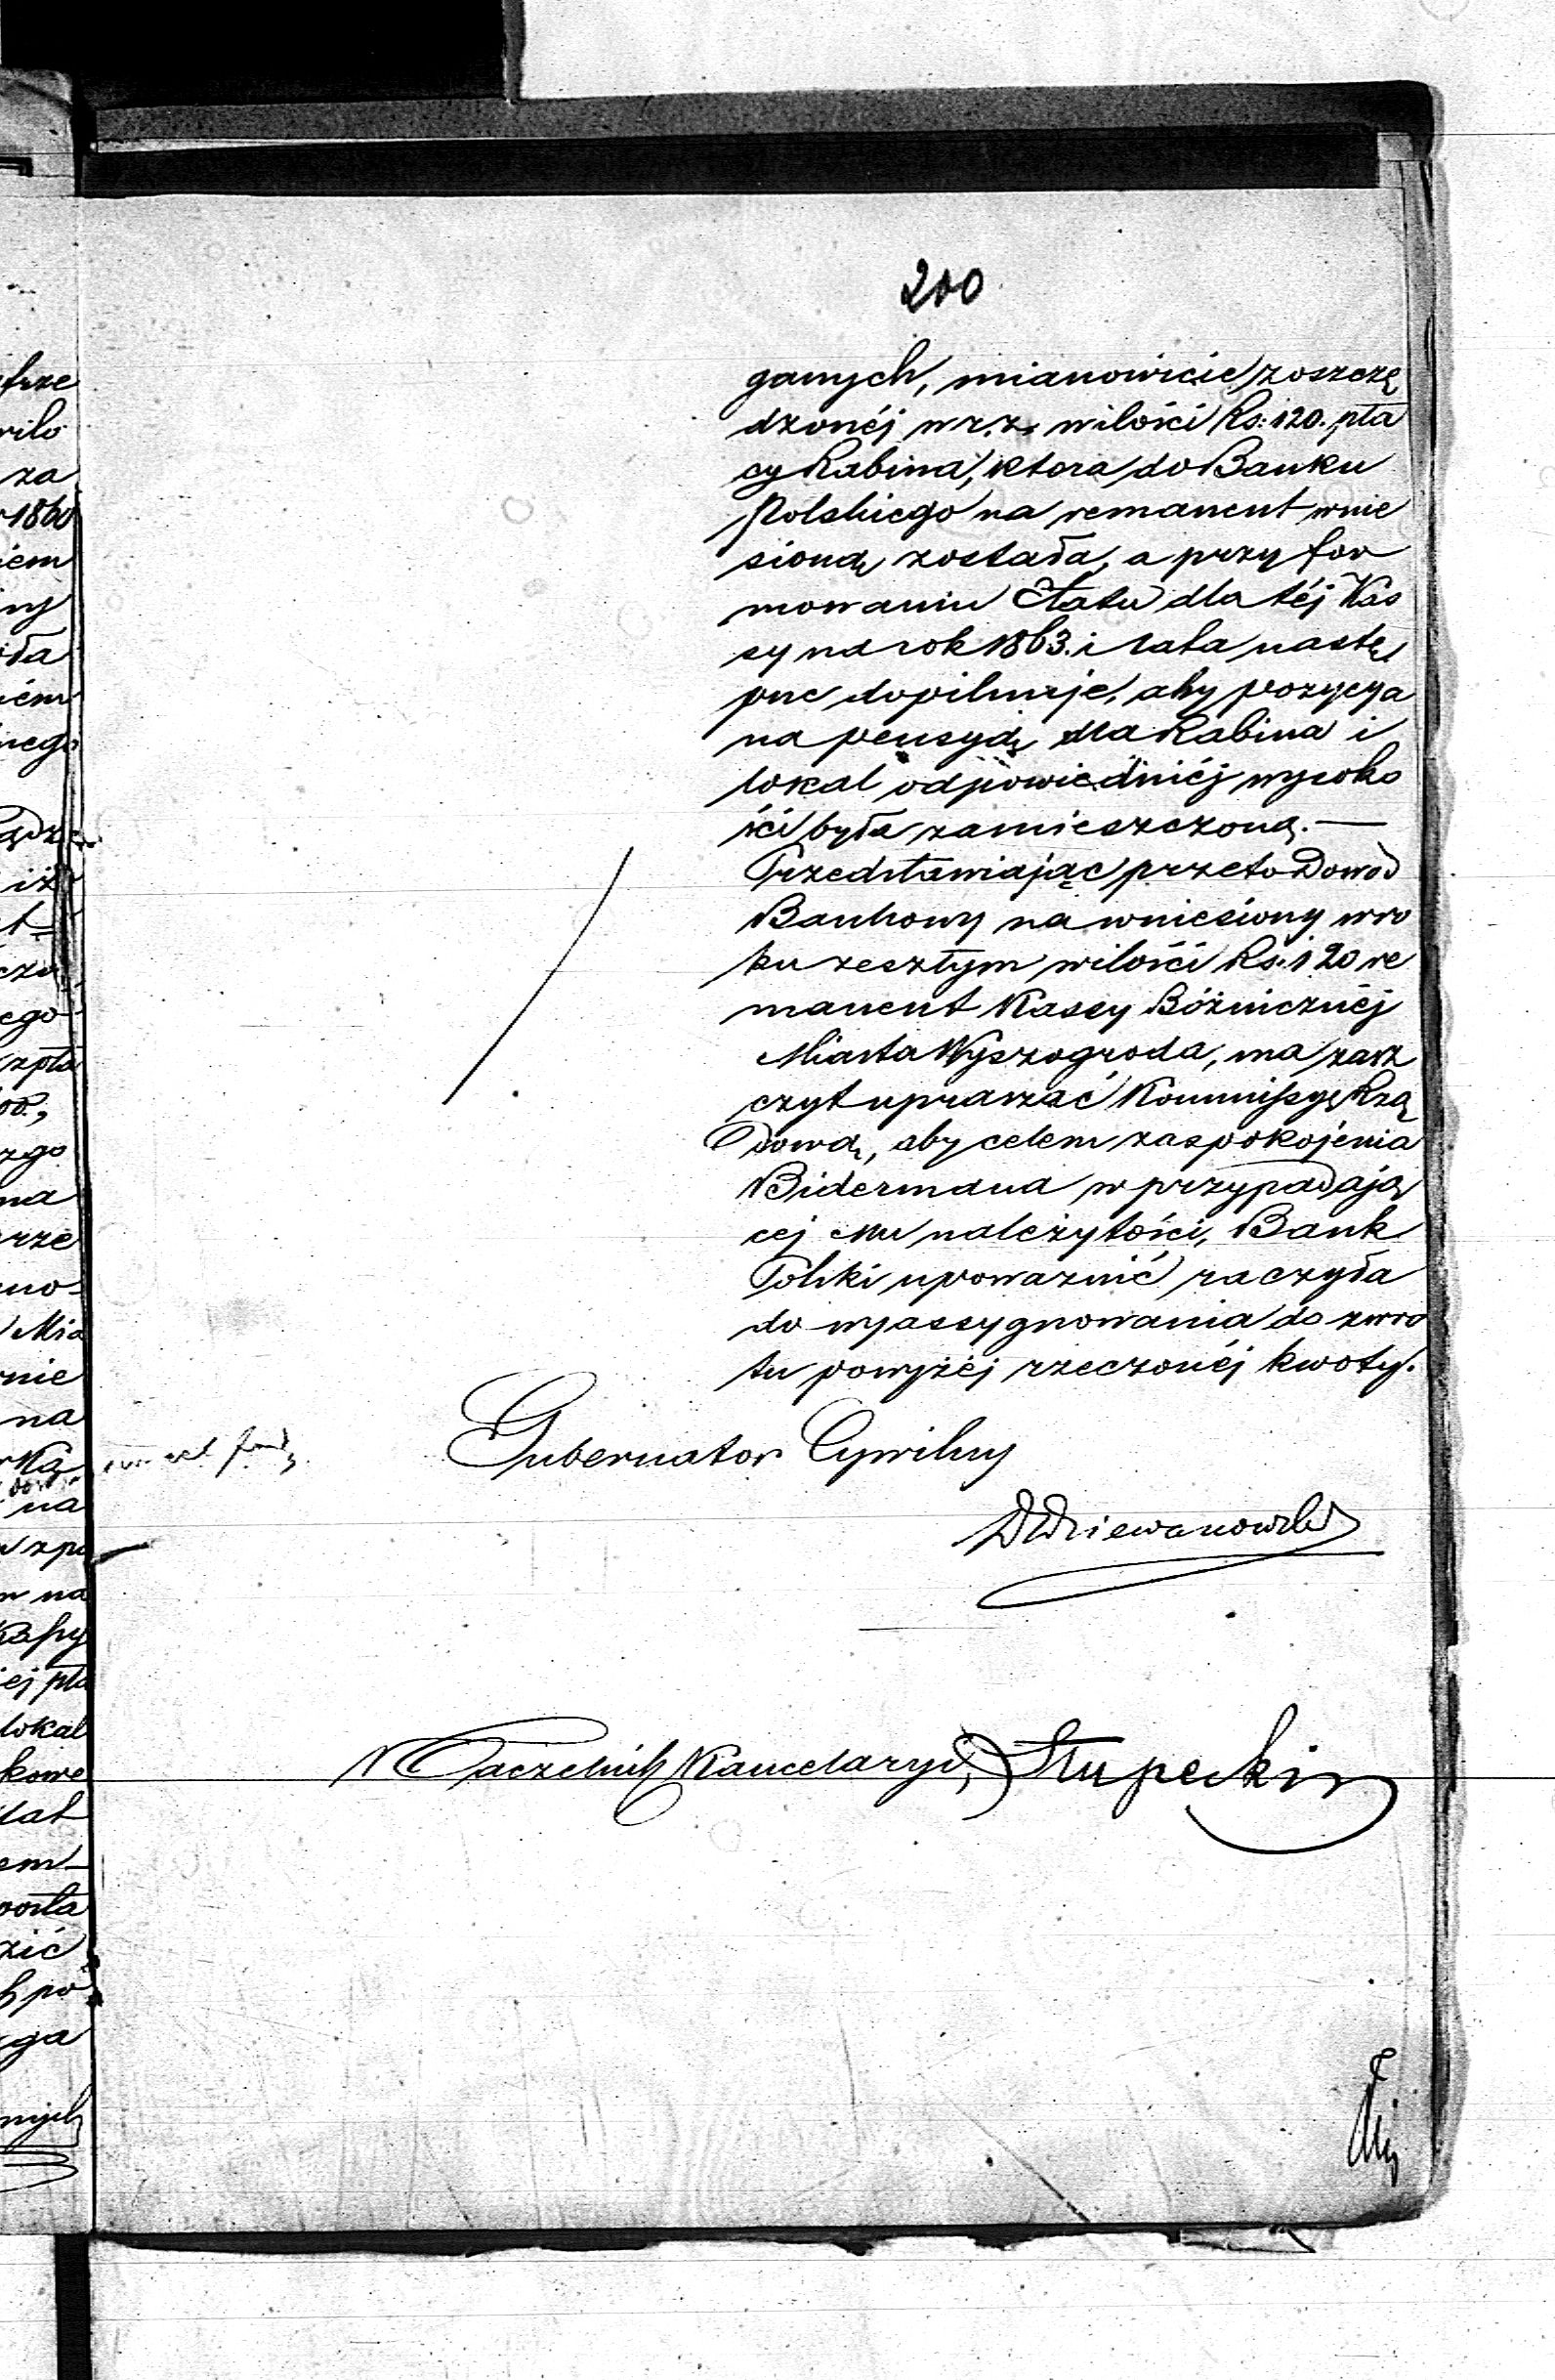 200
ganych, mianowicie zoszczę
dzonéj w r. z. w ilości Rs: 120. pła
cy Rabina, ktora do Banku
Polskiego na remanent wnie
sioną została, a przy for
mowaniu Etatu dla téj Kas
sy na rok 1863. i lata nastę
pne dopilnuje, aby pozycya
na pensyą dla Rabina i
lokal odpowiedniéj wysoko
ści była zamieszczoną. —
Przedstawiając przeto Dowod
Bankowy na wniesiony w ro
ku zeszłym w ilości Rs: 120 re
manent Kassy Bóżnicznéj
Miasta Wyszogroda, ma zasz
czyt upraszać Kommissyę Rzą
dową, aby celem zaspokojenia
Bidermana w przypadają
cej mu należytości, Bank
Polski upoważnić raczyła
do wyassygnowania do zwro
tu powyżéj rzeczonéj kwoty.
Gubernator Cywilny
Naczelnik Kancelaryi, Słupecki
frze
wilo
za
1860
iem
ny
ém
nego
iż
czo
ego
zpła
zgo
na
rze
mo-
Mia
nie
na
Ką
na
zpo
na
Kassy
iej pła
lokal
kowe
dat
em
zić
po
ga
nych